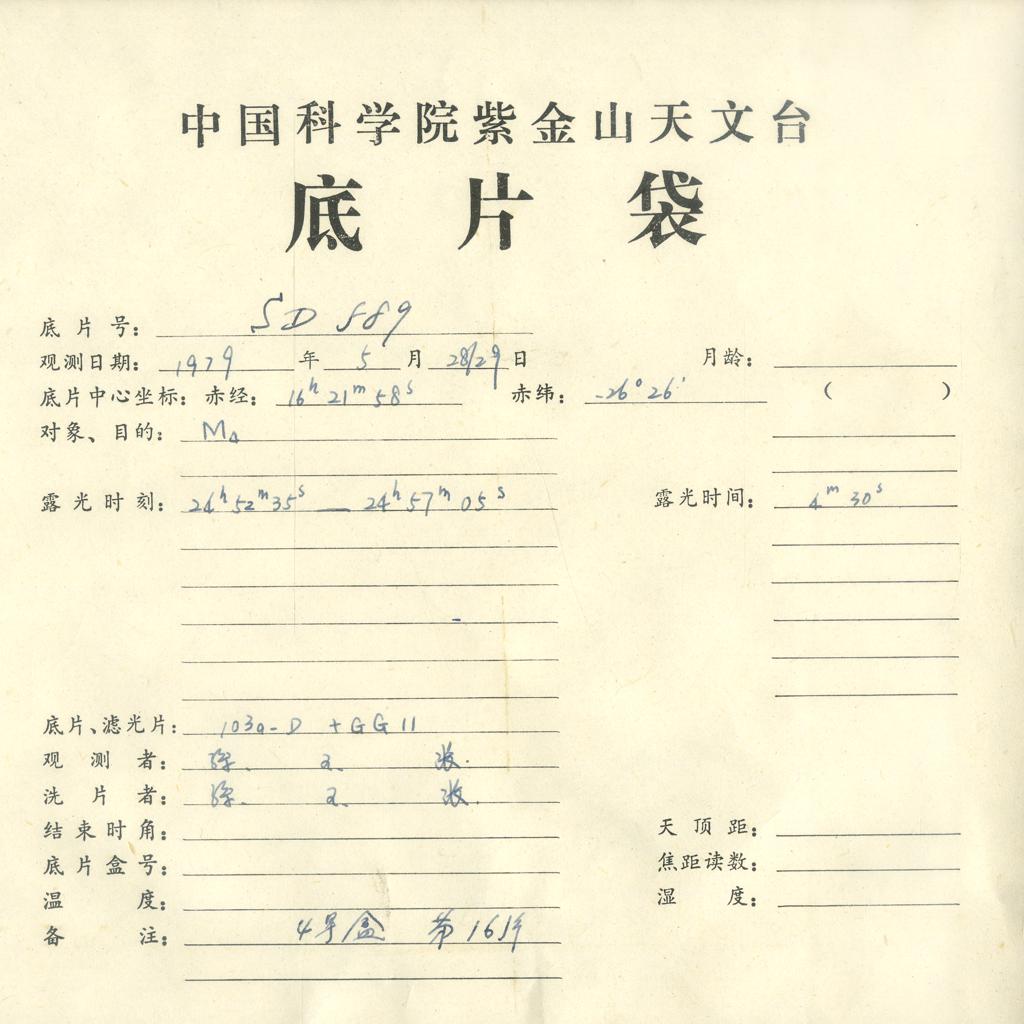 中国科学院紫金山天文台
底片袋
底片号： SD 889
观测日期： 1979 年 5 月 28/29 日 月龄：
底片中心坐标：赤经： 16h 21m 58s 赤纬： -26° 26′ （ ）
对象、目的： M4
露光时刻： 24h 52m 35s — 24h 57m 05s 露光时间： 4m 30s
底片、滤光片： 103a-D + GG 11
观测者： 徐. 王. 张.
洗片者： 徐. 王. 张.
结束时角： 天顶距：
底片盒号： 焦距读数：
温度： 湿度：
备注： 4号盒 第16片